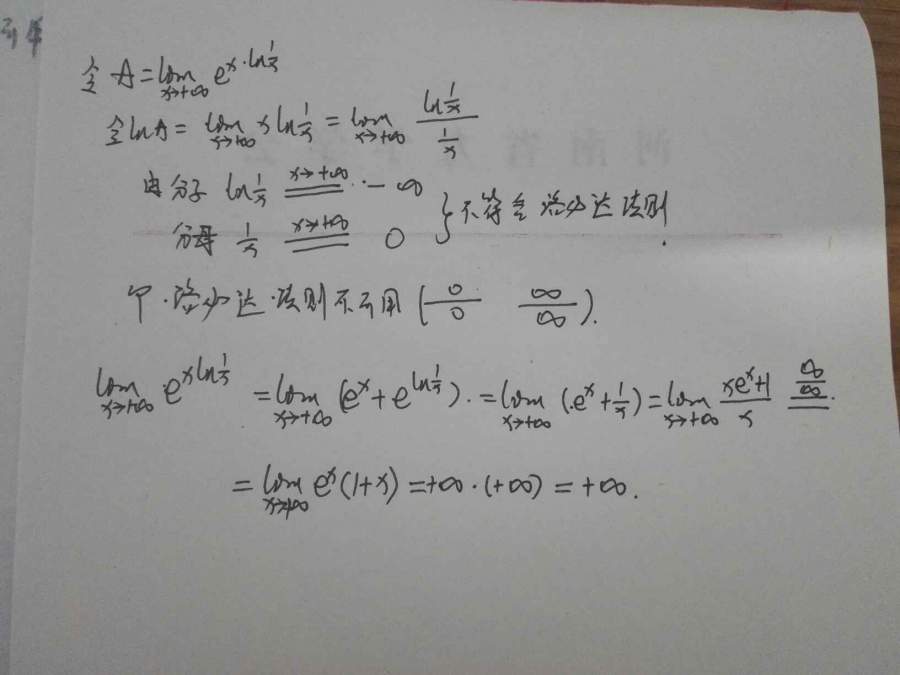 令 A = lim_{x→+∞} e^{x·ln 1/x}
令 lnA = lim_{x→+∞} x ln 1/x = lim_{x→+∞} (ln 1/x)/(1/x)
由分子 ln 1/x x→+∞ -∞
分母 1/x x→+∞ 0 } 不符合洛必达法则.
洛必达法则不可用 (0/0 ∞/∞).
lim_{x→+∞} e^{x ln 1/x} = lim_{x→+∞} (e^x + e^{ln 1/x}). = lim_{x→+∞} (e^x + 1/x) = lim_{x→+∞} (xe^x+1)/x ∞/∞
= lim_{x→+∞} e^x(1+x) = +∞·(+∞) = +∞.